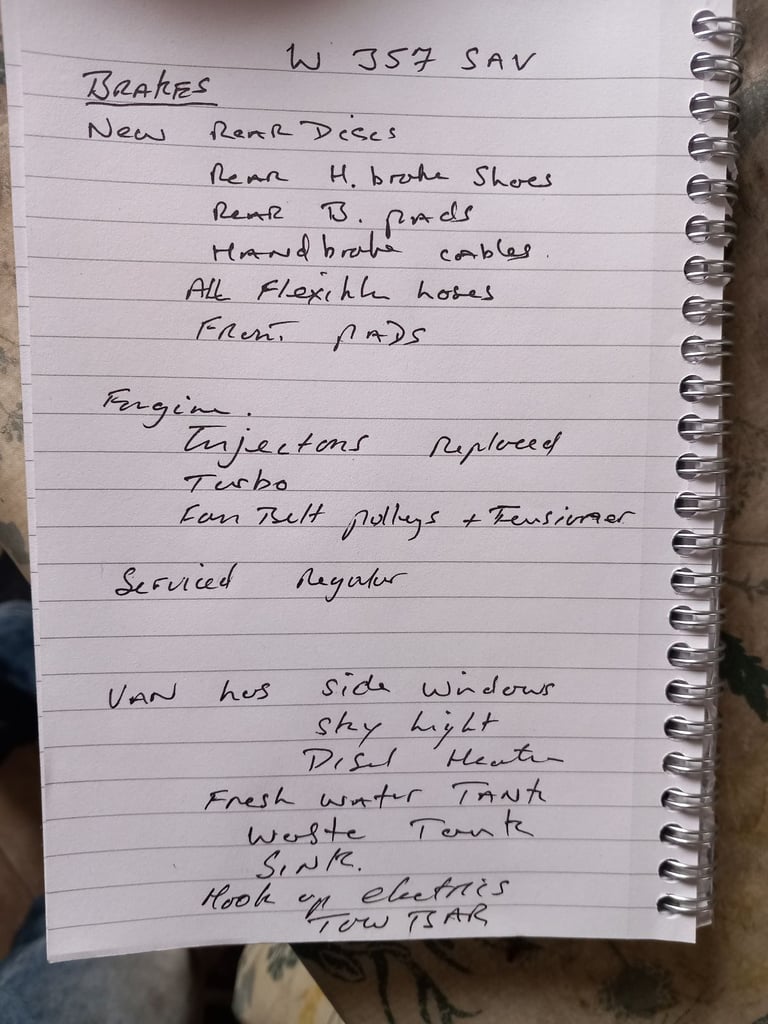 W 357 SAV
BRAKES
New Rear Discs
Rear H. brake Shoes
Rear B. pads
Handbrake cables.
All Flexible hoses
Front pads
Engine.
Injectors Replaced
Turbo
Fan Belt pulleys + Tensioner
Serviced Regular
VAN has side windows
Sky Light
Disel Heater
Fresh water TANK
Waste Tank
SINK.
Hook up electrics
TOW BAR